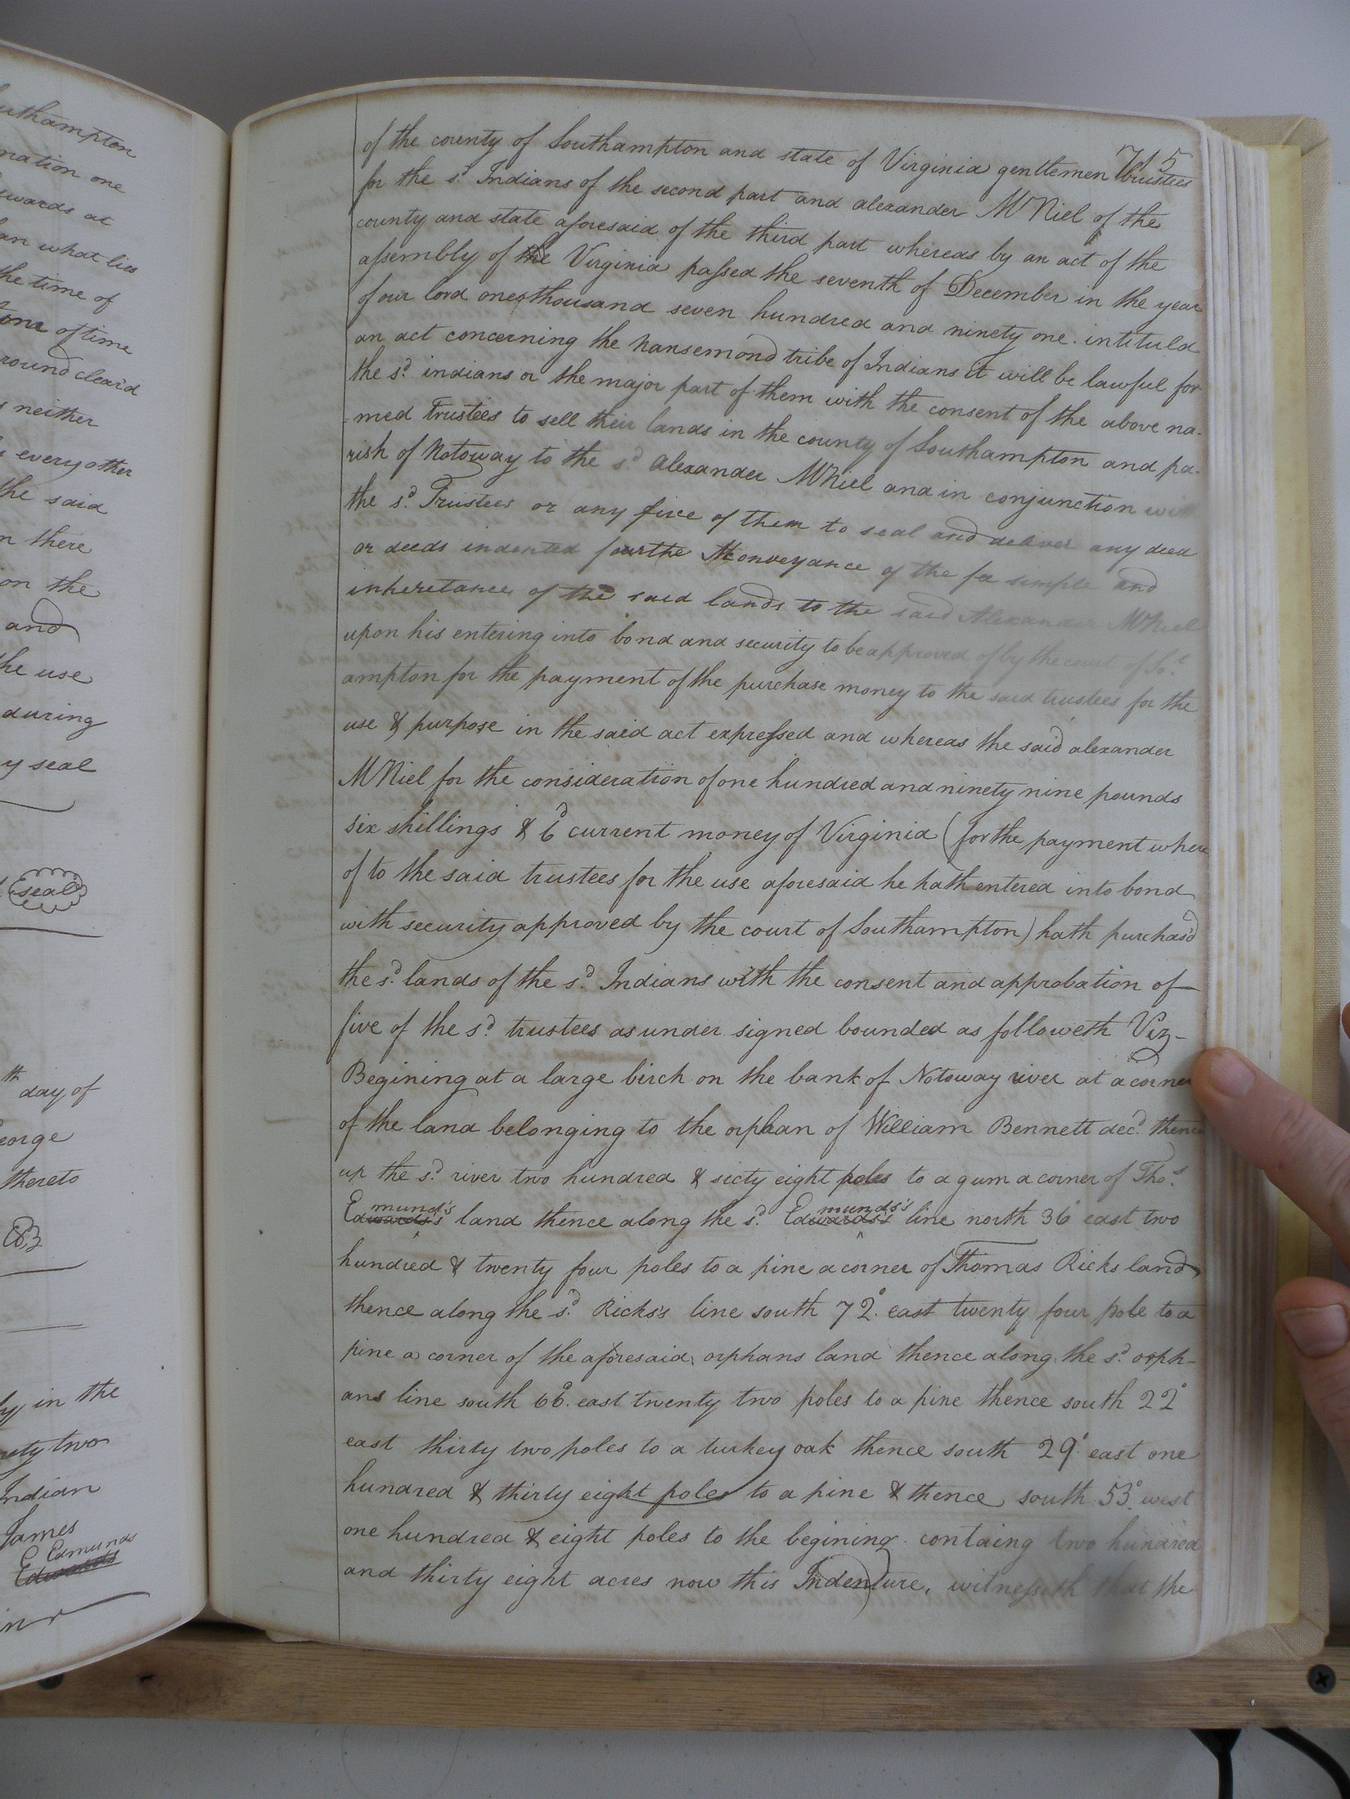 uthampton
nation one
wards at
an what lies
the time of
tom of time
round cleard
s neither
every other
the said
n there
on the
and
he use
during
y seal
seal
th day of
eorge
thereto
in the
ety two
Indian
James
Edmunds
Edwards
715
of the county of Southampton and state of Virginia gentlemen trustees
for the sd. Indians of the second part and alexander McNiel of the
county and state aforesaid of the third part whereas by an act of the
assembly of the Virginia passed the seventh of December in the year
of our lord one thousand seven hundred and ninety one. intituld
an act concerning the nansemond tribe of Indians it will be lawful for
the sd. indians or the major part of them with the consent of the above na-
-med Trustees to sell their lands in the county of Southampton and pa-
rish of Notoway to the sd. alexander McNiel and in conjunction with
the sd. Trustees or any five of them to seal and deliver any deed
or deeds indented for the conveyance of the fee simple and
inheretance of the said lands to the said Alexander McNiel
upon his entering into bond and security to be approved of by the court of So.
ampton for the payment of the purchase money to the said trustees for the
use & purpose in the said act expressed and whereas the said alexander
McNiel for the consideration of one hundred and ninety nine pounds
six shillings & 6d current money of Virginia (for the payment where
of to the said trustees for the use aforesaid he hath entered into bond
with security approved by the court of Southampton) hath purchas'd
the sd. lands of the sd. Indians with the consent and approbation of
five of the sd. trustees as under signed bounded as followeth Viz-
Begining at a large birch on the bank of Notoway river at a corner
of the land belonging to the orphan of William Bennett decd. thence
up the sd. river two hundred & sixty eight poles to a gum a corner of Thos.
Edwards's munds's land thence along the sd. Edwards's munds's line north 36° east two
hundred & twenty four poles to a pine a corner of Thomas Ricks land
thence along the sd. Ricks's line south 72° east twenty four pole to a
pine a corner of the aforesaid orphans land thence along the sd. orph-
ans line south 66° east twenty two poles to a pine thence south 22°
east thirty two poles to a turkey oak thence south 29° east one
hundred & thirty eight poles to a pine & thence south 53° west
one hundred & eight poles to the begining containg two hundred
and thirty eight acres now this Indenture, witnesseth that the